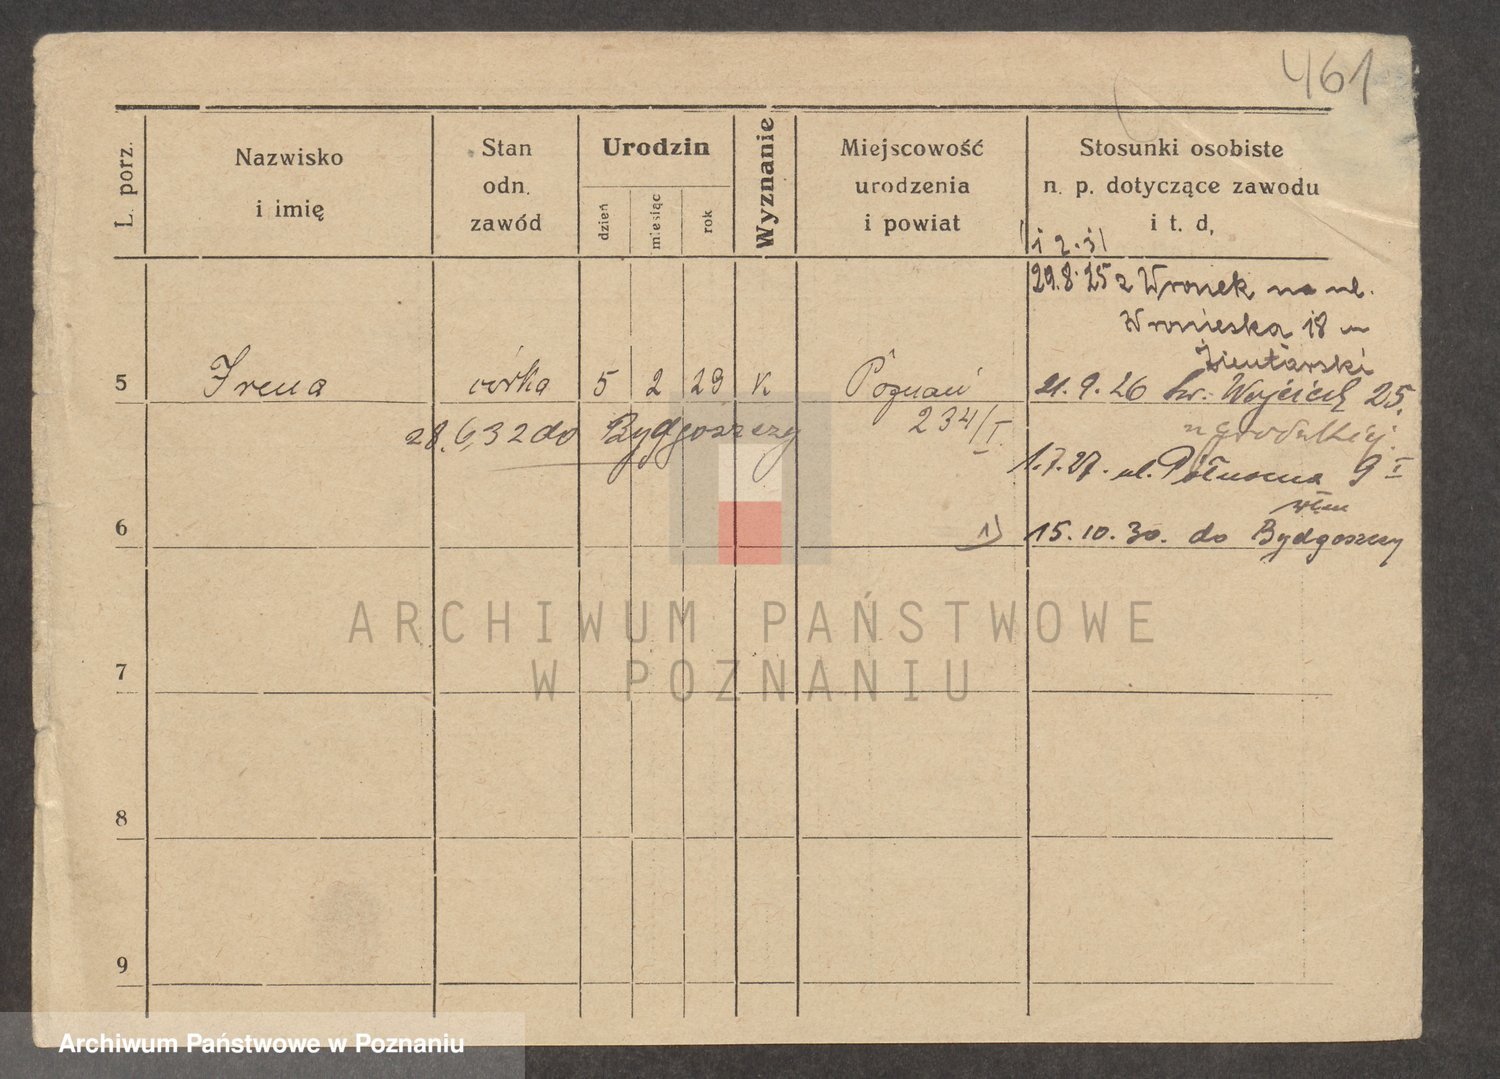 461
L. porz.
Nazwisko
i imię
Stan
odn.
zawód
Urodzin
dzień
miesiąc
rok
Wyznanie
Miejscowość
urodzenia
i powiat
Stosunki osobiste
n. p. dotyczące zawodu
i t. d.
29.8.25 z Wronek na ul.
Wroniecka 18
5 Irena córka 5 2 29 K Poznań
21.9.26 św. Wojciech 25.
28.6.32 do Bydgoszczy 234/I.
1.7.27. ul. Półwena 9 I
6
1) 15.10.30. do Bydgoszczy
7
8
9
ARCHIWUM PAŃSTWOWE
W POZNANIU
Archiwum Państwowe w Poznaniu